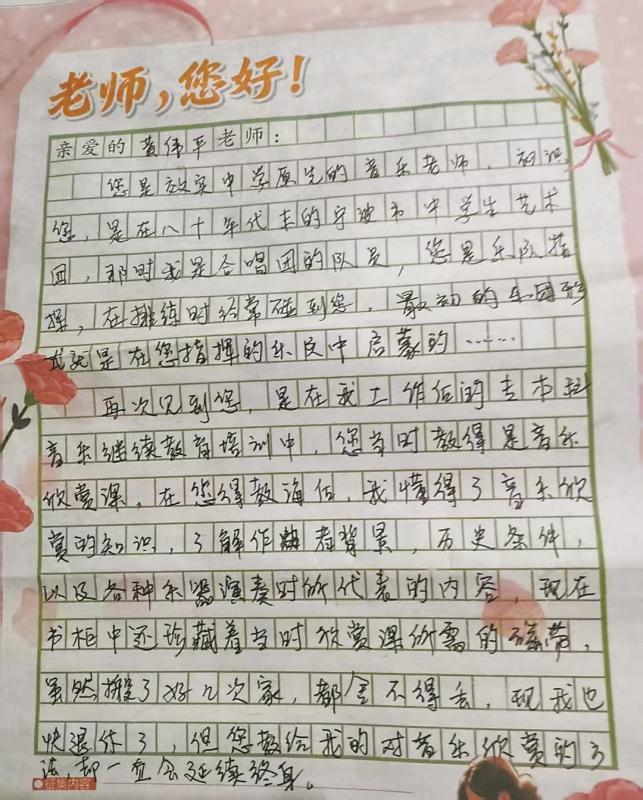 老师，您好！
亲爱的黄伟平老师：
您是效实中学原先的音乐老师，初识
您，是在八十年代末的宁波市中学生艺术
团，那时我是合唱团的队员，您是乐队指
挥，在排练时经常碰到您，最初的乐团形
式就是在您指挥的乐队中启蒙的……
再次见到您，是在我工作后的专本科
音乐继续教育培训中，您当时教得是音乐
欣赏课，在您得教诲后，我懂得了音乐欣
赏的知识，了解作者背景，历史条件，
以及各种乐器演奏时所代表的内容，现在
书柜中还珍藏着当时欣赏课所需的磁带，
虽然搬了好几次家，都舍不得丢，现我也
快退休了，但您教给我的对音乐欣赏的方
法，却一直会延续终身。
征集内容